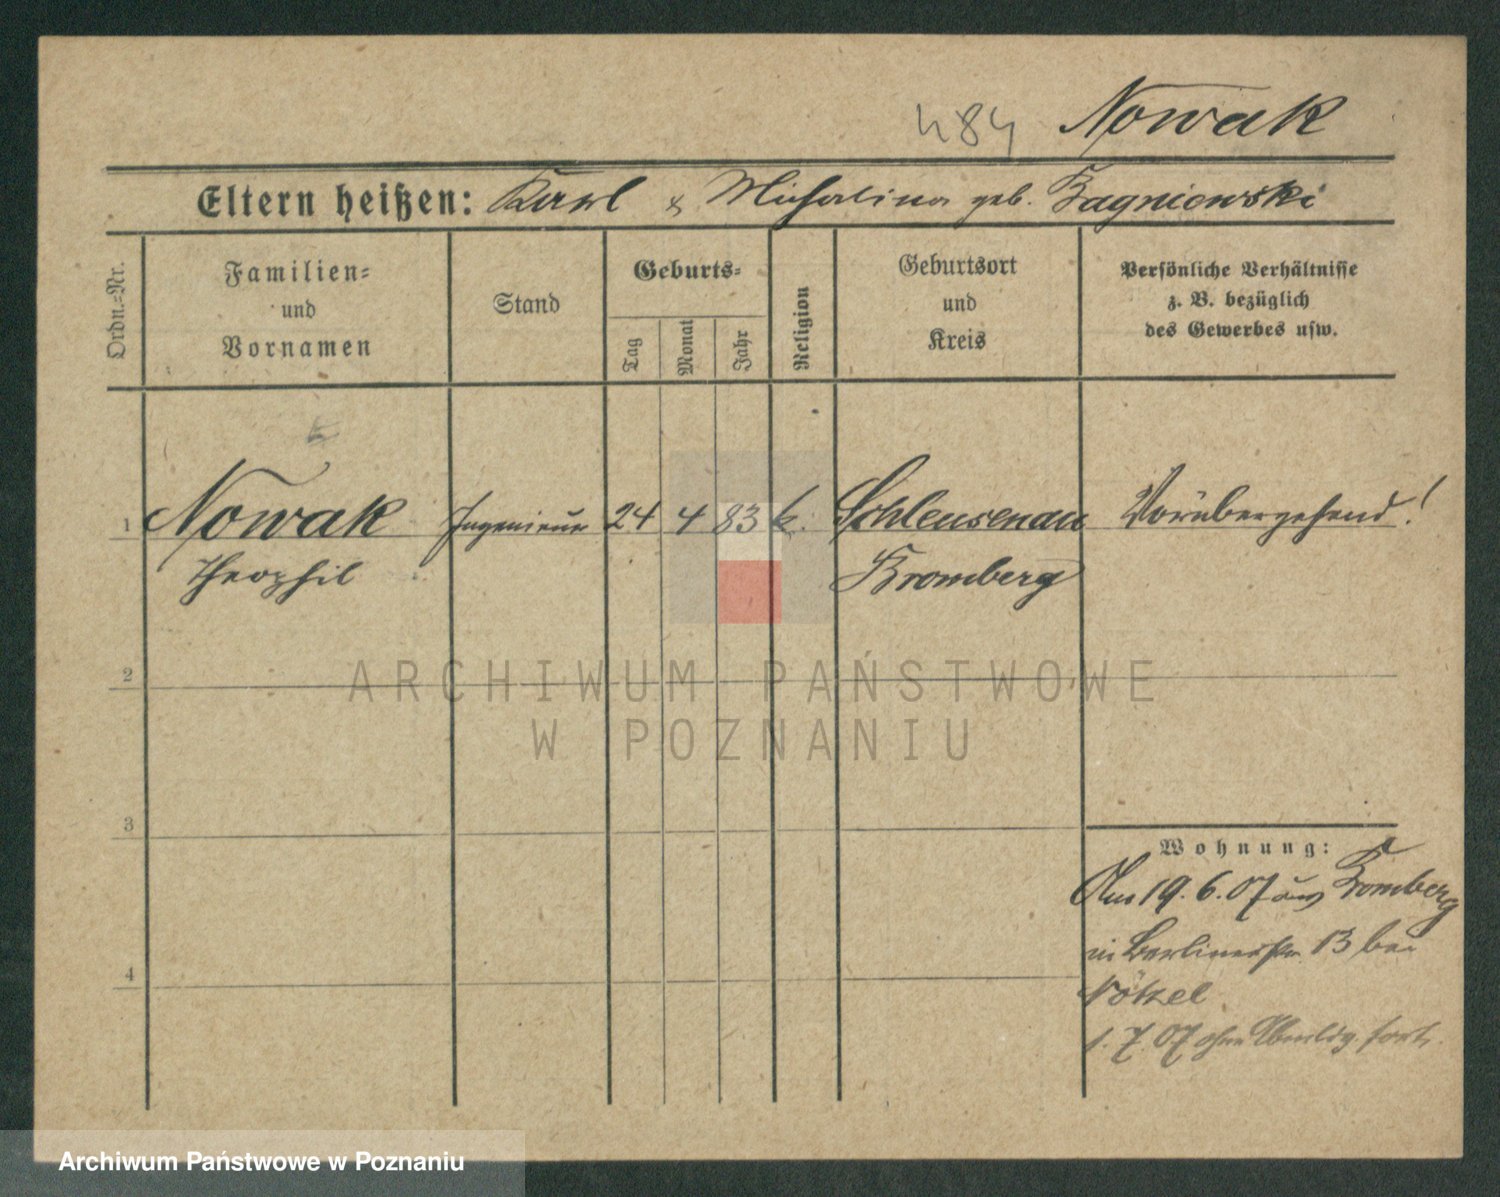 484 Nowak
Eltern heißen: Karl & Michalina geb. Zagniewski
Ordn.-Nr.
Familien-
und
Vornamen
Stand
Geburts-
Tag
Monat
Jahr
Religion
Geburtsort
und
Kreis
Persönliche Verhältnisse
z. B. bezüglich
des Gewerbes usw.
1 Nowak Ingenieur 24 4 83 k. Schleusenau Vorübergehend!
Theophil Bromberg
2
ARCHIWUM PAŃSTWOWE
W POZNANIU
3
Wohnung:
Am 19. 6. 07 aus Bromberg
in Berlinerstr. 13 bei
Nötzel
4
1. 7. 07 ohne Abmldg. fort.
Archiwum Państwowe w Poznaniu